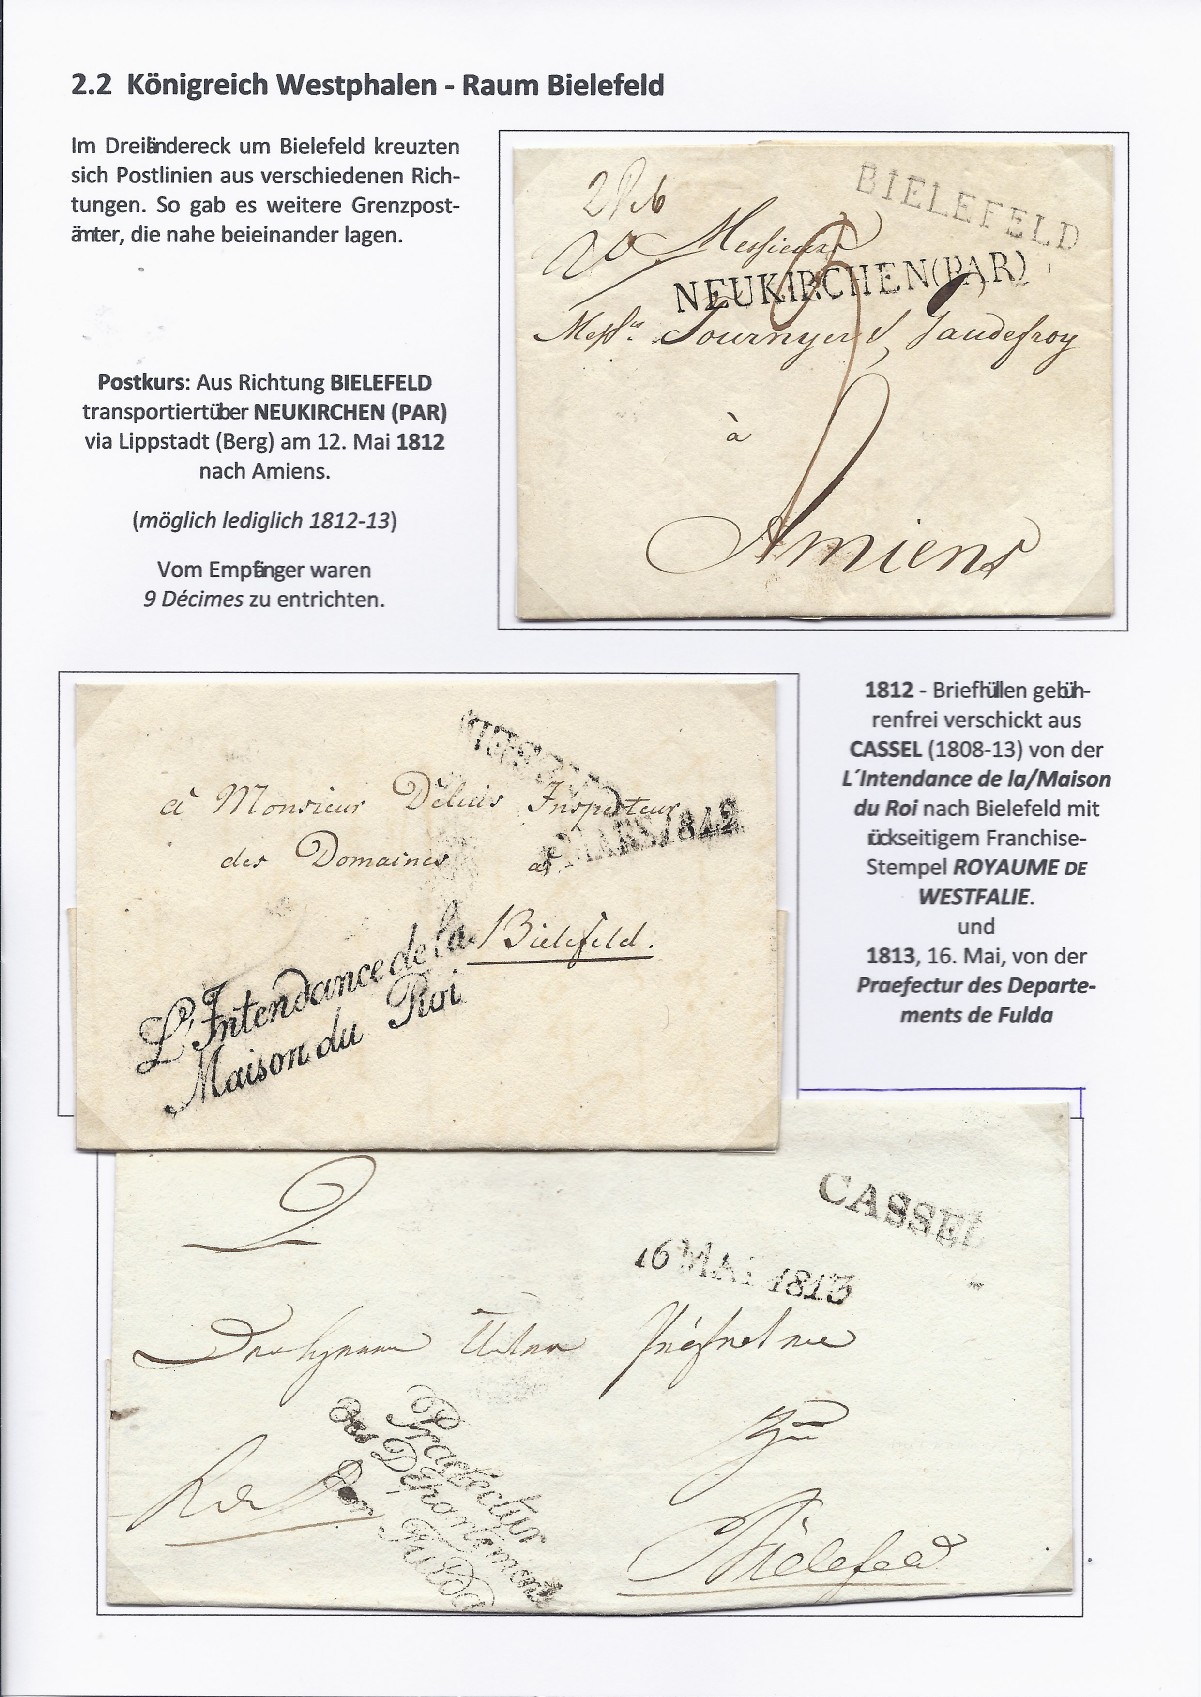 2.2 Königreich Westphalen - Raum Bielefeld
Im Dreiländereck um Bielefeld kreuzten
sich Postlinien aus verschiedenen Rich-
tungen. So gab es weitere Grenzpost-
ämter, die nahe beieinander lagen.
Postkurs: Aus Richtung BIELEFELD
transportiertüber NEUKIRCHEN (PAR)
via Lippstadt (Berg) am 12. Mai 1812
nach Amiens.
(möglich lediglich 1812-13)
Vom Empfänger waren
9 Décimes zu entrichten.
BIELEFELD
Messieurs
NEUKIRCHEN(PAR)
Messrs Tournyer & Jaudefroy
à
Amiens
1812 - Briefhüllen gebüh-
renfrei verschickt aus
CASSEL (1808-13) von der
L´Intendance de la/Maison
du Roi nach Bielefeld mit
ückseitigem Franchise-
Stempel ROYAUME DE
WESTFALIE.
und
1813, 16. Mai, von der
Praefectur des Departe-
ments de Fulda
à Monsieur Délius Inspecteur
MARS 1812
des Domaines à
Bielefeld.
L'Intendance de la
Maison du Roi
CASSEL
16 MAI 1813
Praefectur
des Departements
der Fulda
Bielefeld